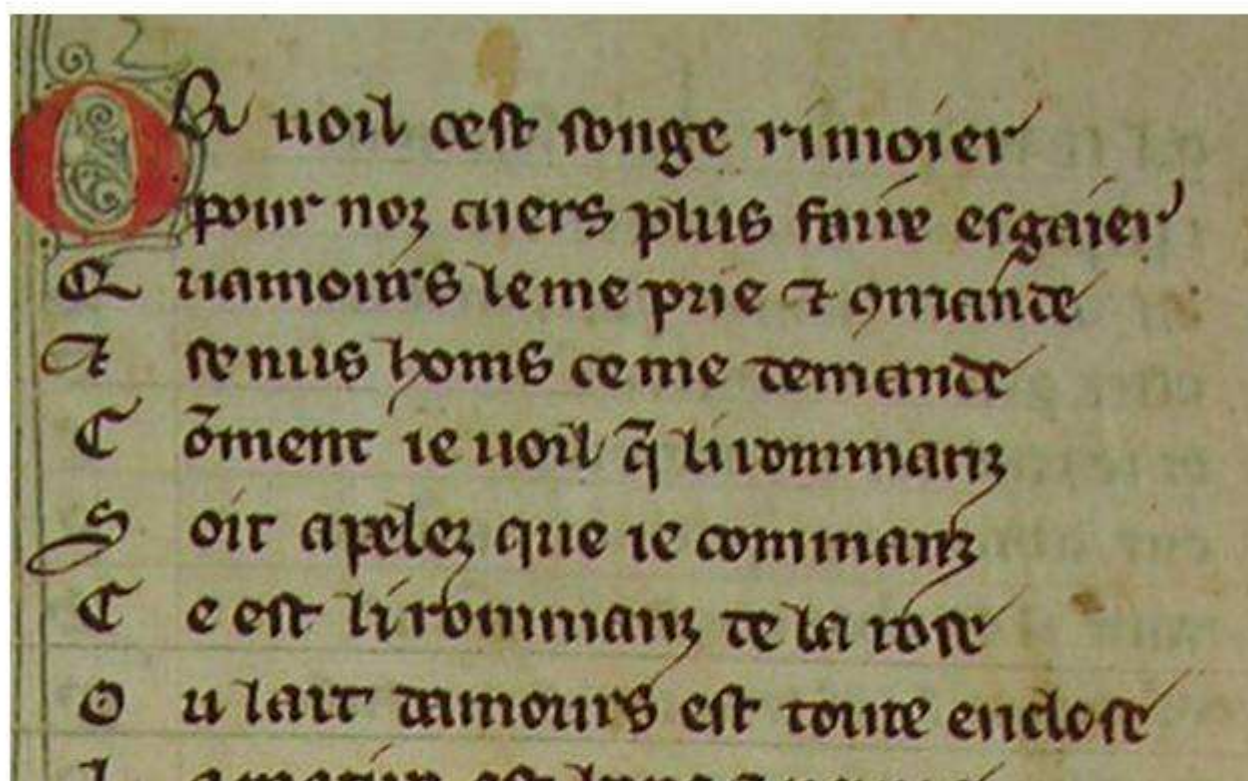 OR uoil cest songe rimoier
pour noz cuers plus faire esgaier
Q uamours le me prie ⁊ ꝯmande
Et se nus homs ce me demande
C õment ie uoil q̃ li rommanz
S oit apelez que ie commanz
C e est li rommanz de la rose
O u lart damours est toute enclose
L a matire est bone